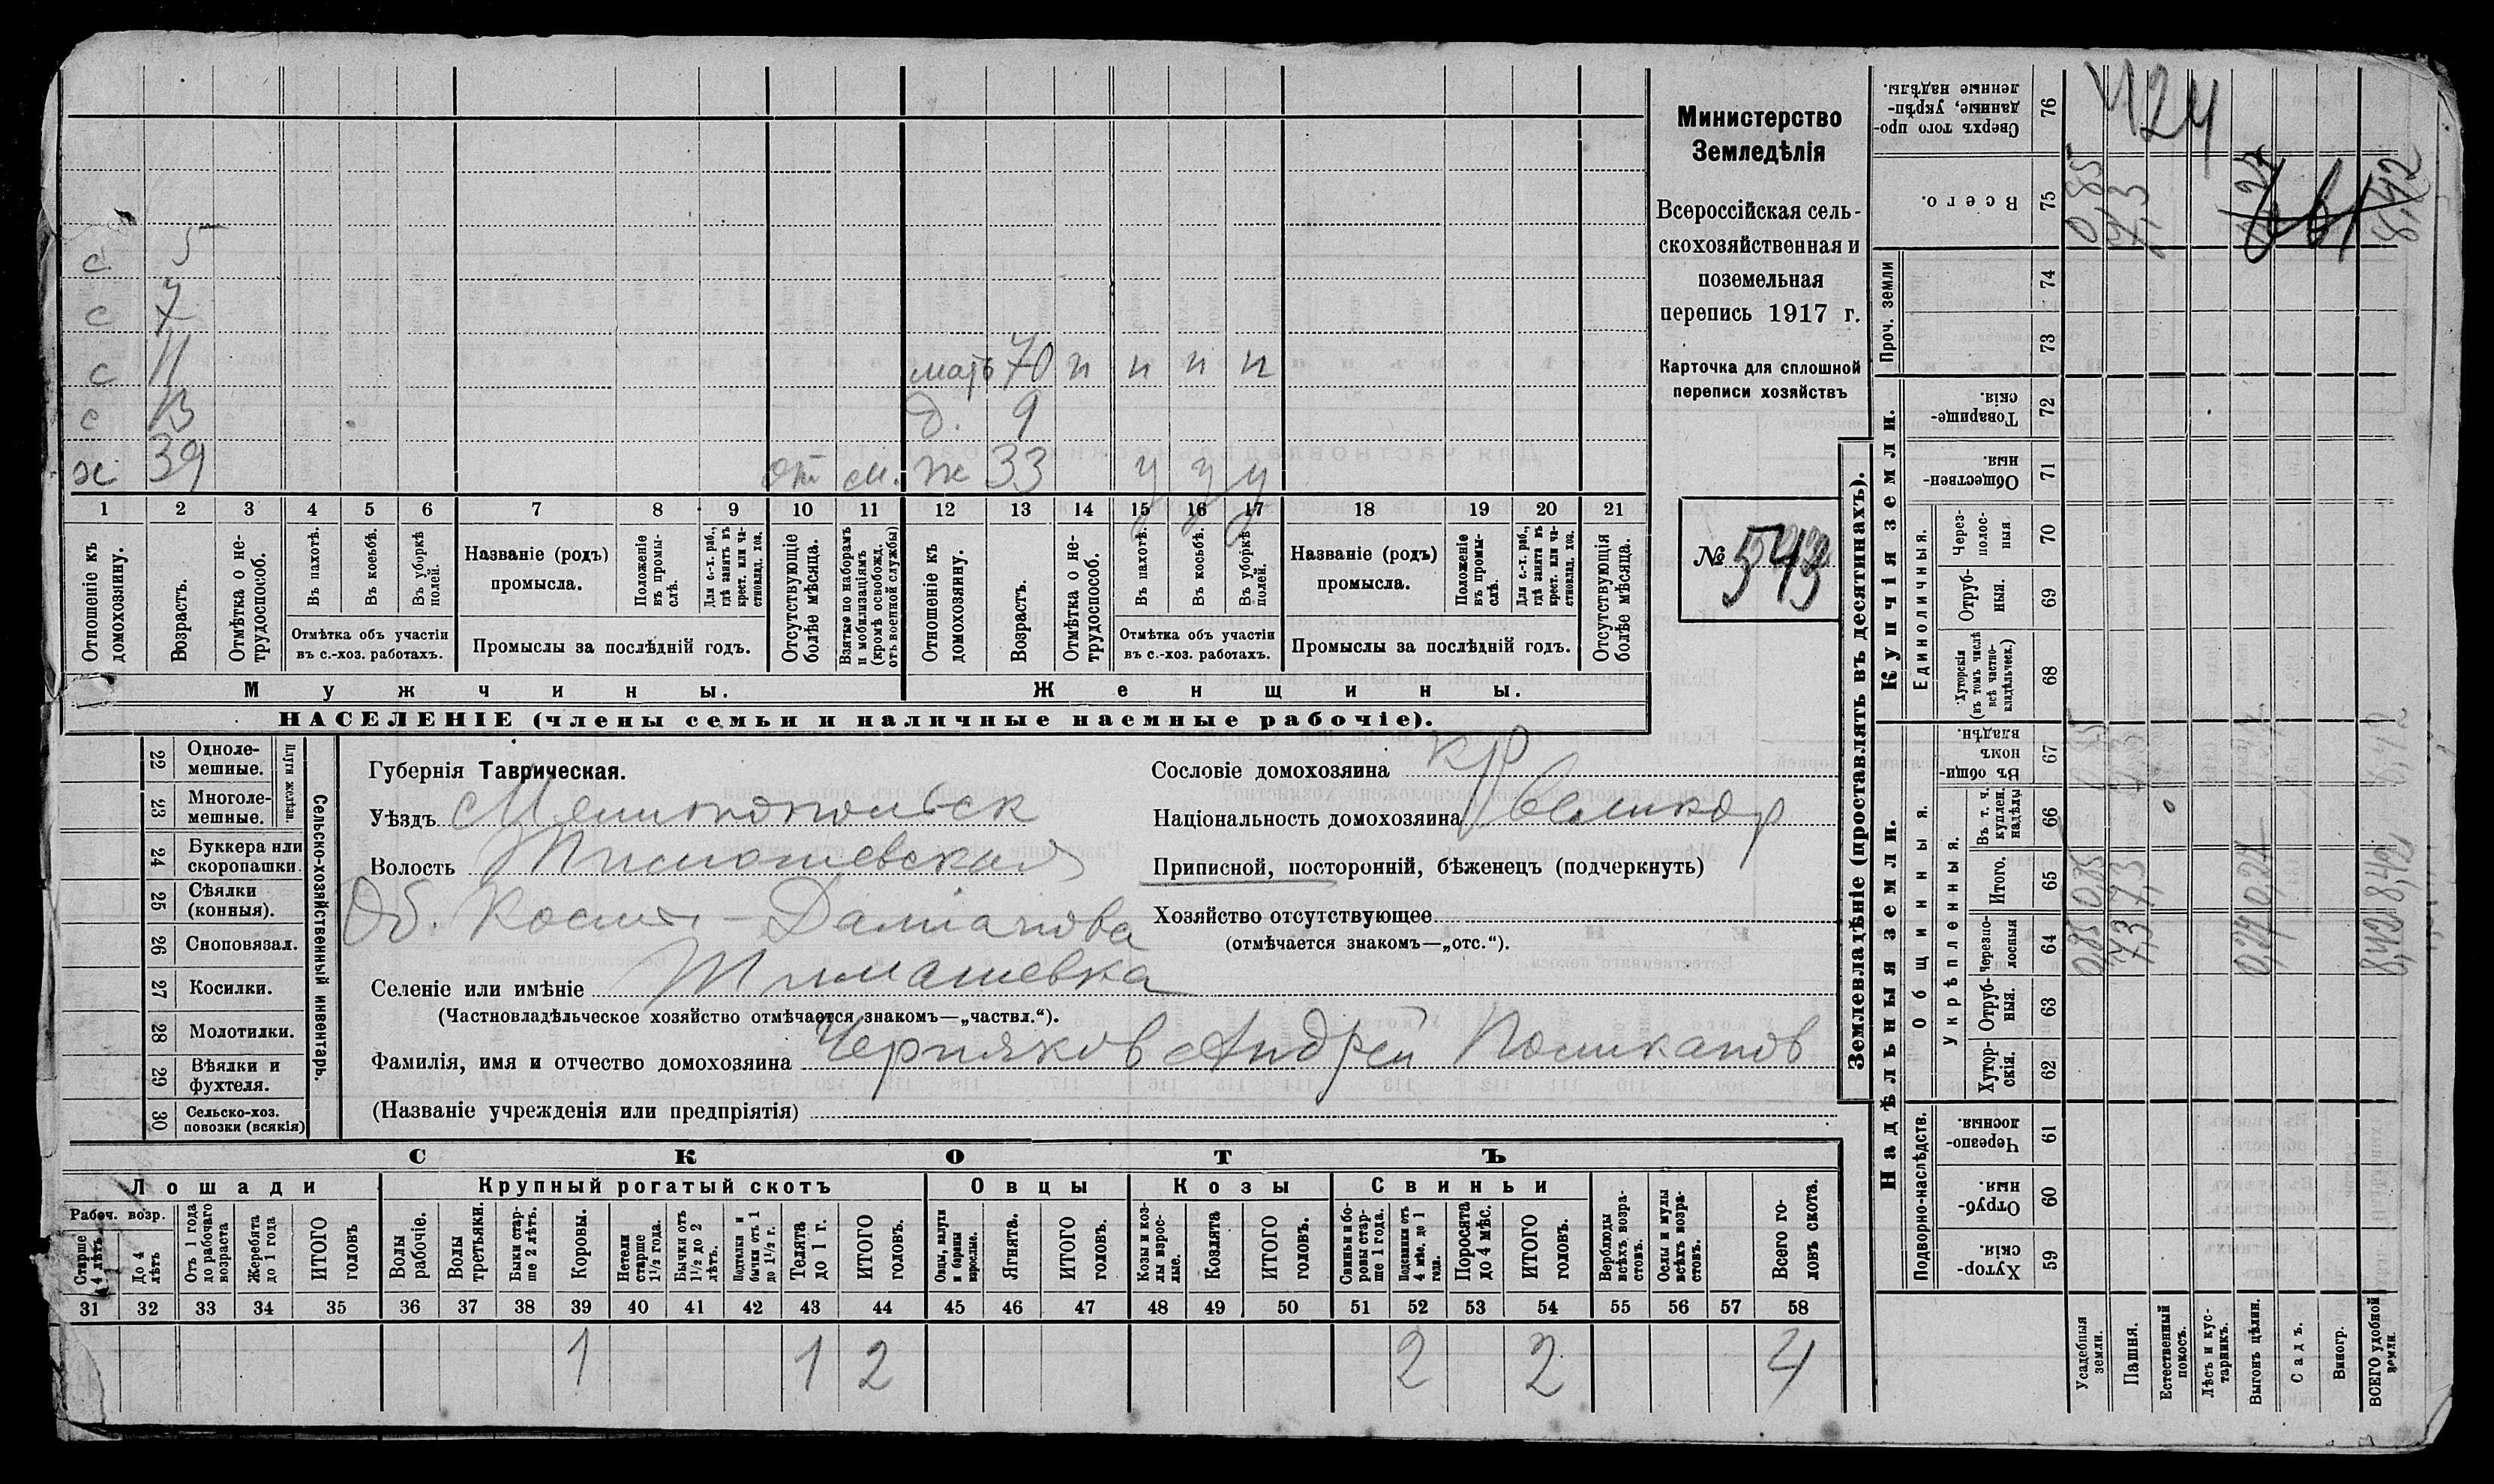 Министерство
Земледѣлія
Всероссійская сель-
скохозяйственная и
поземельная
перепись 1917 г.
Карточка для сплошной
переписи хозяйствъ
№ 543
с 5
с 7
с 11 мать 70 н н н н
с 13 д. 9
х 39 от м. ж 33 у у у
1 2 3 4 5 6 7 8 9 10 11 12 13 14 15 16 17 18 19 20 21
Отношеніе къ домохозяину.
Возрастъ.
Отмѣтка о не-трудоспособ.
Въ пахотѣ.
Въ косьбѣ.
Въ уборкѣ полей.
Отмѣтка объ участіи
въ с.-хоз. работахъ.
Названіе (родъ)
промысла.
Положеніе въ промы-слѣ.
Для с.-х. раб., гдѣ занятъ въ крест. или ча-стновлад. хоз.
Промыслы за послѣдній годъ.
Отсутствующіе болѣе мѣсяца.
Взятые по наборамъ и мобилизаціямъ (кромѣ освобожд. отъ военной службы)
Отношеніе къ домохозяину.
Возрастъ.
Отмѣтка о не-трудоспособ.
Въ пахотѣ.
Въ косьбѣ.
Въ уборкѣ полей.
Отмѣтка объ участіи
въ с.-хоз. работахъ.
Названіе (родъ)
промысла.
Положеніе въ промы-слѣ.
Для с.-х. раб., гдѣ занята въ крест. или ча-стновлад. хоз.
Промыслы за послѣдній годъ.
Отсутствующія болѣе мѣсяца.
Мужчины. Женщины.
НАСЕЛЕНІЕ (члены семьи и наличные наемные рабочіе).
Сельско-хозяйственный инвентарь.
Плуги желѣзн.
22 Одноле-мешные.
23 Многоле-мешные.
24 Буккера или скоропашки.
25 Сѣялки (конныя).
26 Сноповязал.
27 Косилки.
28 Молотилки.
29 Вѣялки и фухтеля.
30 Сельско-хоз. повозки (всякія)
Губернія Таврическая.
Уѣздъ Мелитопольск
Волость Тимошевская
Об. Косьмо-Даміанова
Селеніе или имѣніе Тимашевка
(Частновладѣльческое хозяйство отмѣчается знакомъ—„частвл.“).
Фамилія, имя и отчество домохозяина Черняков Андрей Поликапов
(Названіе учрежденія или предпріятія)
Сословіе домохозяина кр
Національность домохозяина великор
Приписной, посторонній, бѣженецъ (подчеркнуть)
Хозяйство отсутствующее
(отмѣчается знакомъ—„отс.“).
СКОТЪ
Лошади Крупный рогатый скотъ Овцы Козы Свиньи
Рабоч. возр.
Старше 4 лѣтъ
До 4 лѣтъ
Отъ 1 года до рабочаго возраста
Жеребята до 1 года
ИТОГО головъ
Волы рабочіе.
Волы третьяки.
Быки стар-ше 2 лѣтъ.
Коровы.
Нетели старше 1½ года.
Бычки отъ 1½ до 2 лѣтъ.
Подтелки и бычки отъ 1 до 1½ г.
Телята до 1 г.
ИТОГО головъ.
Овцы, валухи и бараны взрослые.
Ягнята.
ИТОГО головъ.
Козы и коз-лы взрос-лые.
Козлята
ИТОГО головъ.
Свиньи и бо-ровы стар-ше 1 года.
Подсвинки отъ 4 мѣс. до 1 года.
Поросята до 4 мѣс.
ИТОГО головъ.
Верблюды всѣхъ возра-стовъ.
Ослы и мулы всѣхъ возра-стовъ.
Всего го-ловъ скота.
31 32 33 34 35 36 37 38 39 40 41 42 43 44 45 46 47 48 49 50 51 52 53 54 55 56 57 58
1 1 2 2 2 4
Землевладѣніе (проставлять въ десятинахъ).
424
Сверхъ того про-данные, укрѣп-ленные надѣлы. 76
Всего. 75 0,85 7,3 8,42
Проч. земли 74 73
Купчія земли.
Товарище-скія. 72
Обществен-ныя. 71
Единоличныя.
Через-полос-ныя 70
Отруб-ныя. 69
Хуторскія (въ томъ числѣ всѣ частно-владѣльческ.) 68
Надѣльныя земли.
Общинныя.
Въ общи-номъ владѣн. 67
Укрѣпленныя.
Въ т. ч. куплен. надѣлы 66
Итого. 65 0,85 7,3 8,42
Черезпо-лосныя 64 0,85 7,3 8,42
Отруб-ныя. 63
Хутор-скія. 62
Подворно-наслѣдств.
Черезпо-лосныя. 61
Отруб-ныя. 60
Хутор-скія. 59
Усадебныя земли.
Пашня.
Естественный покосъ.
Лѣсъ и кус-тарникъ.
Выгонъ цѣлин.
Садъ.
Виногр.
ВСЕГО удобной земли.